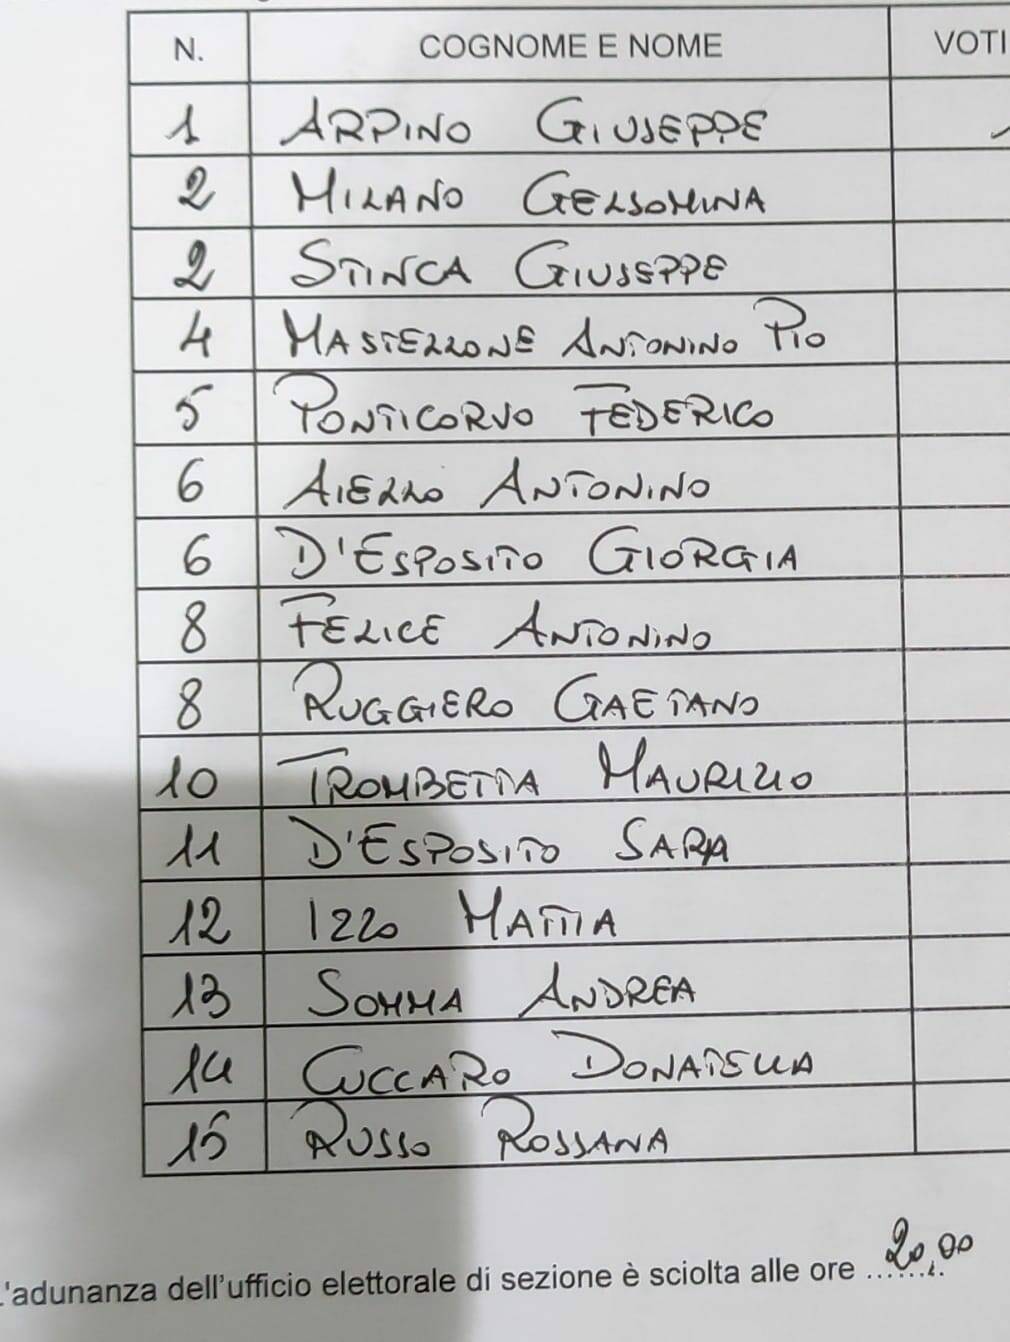 N. COGNOME E NOME VOTI
1 ARPINO GIUSEPPE
2 MILANO GELSOMINA
2 STINCA GIUSEPPE
4 MASTELLONE ANTONINO PIO
5 PONTICORVO FEDERICO
6 AIELLO ANTONINO
6 D'ESPOSITO GIORGIA
8 FELICE ANTONINO
8 RUGGIERO GAETANO
10 TROMBETTA MAURIZIO
11 D'ESPOSITO SARA
12 IZZO MATTIA
13 SOMMA ANDREA
14 CUCCARO DONATELLA
15 RUSSO ROSSANA
L'adunanza dell'ufficio elettorale di sezione è sciolta alle ore 20,00